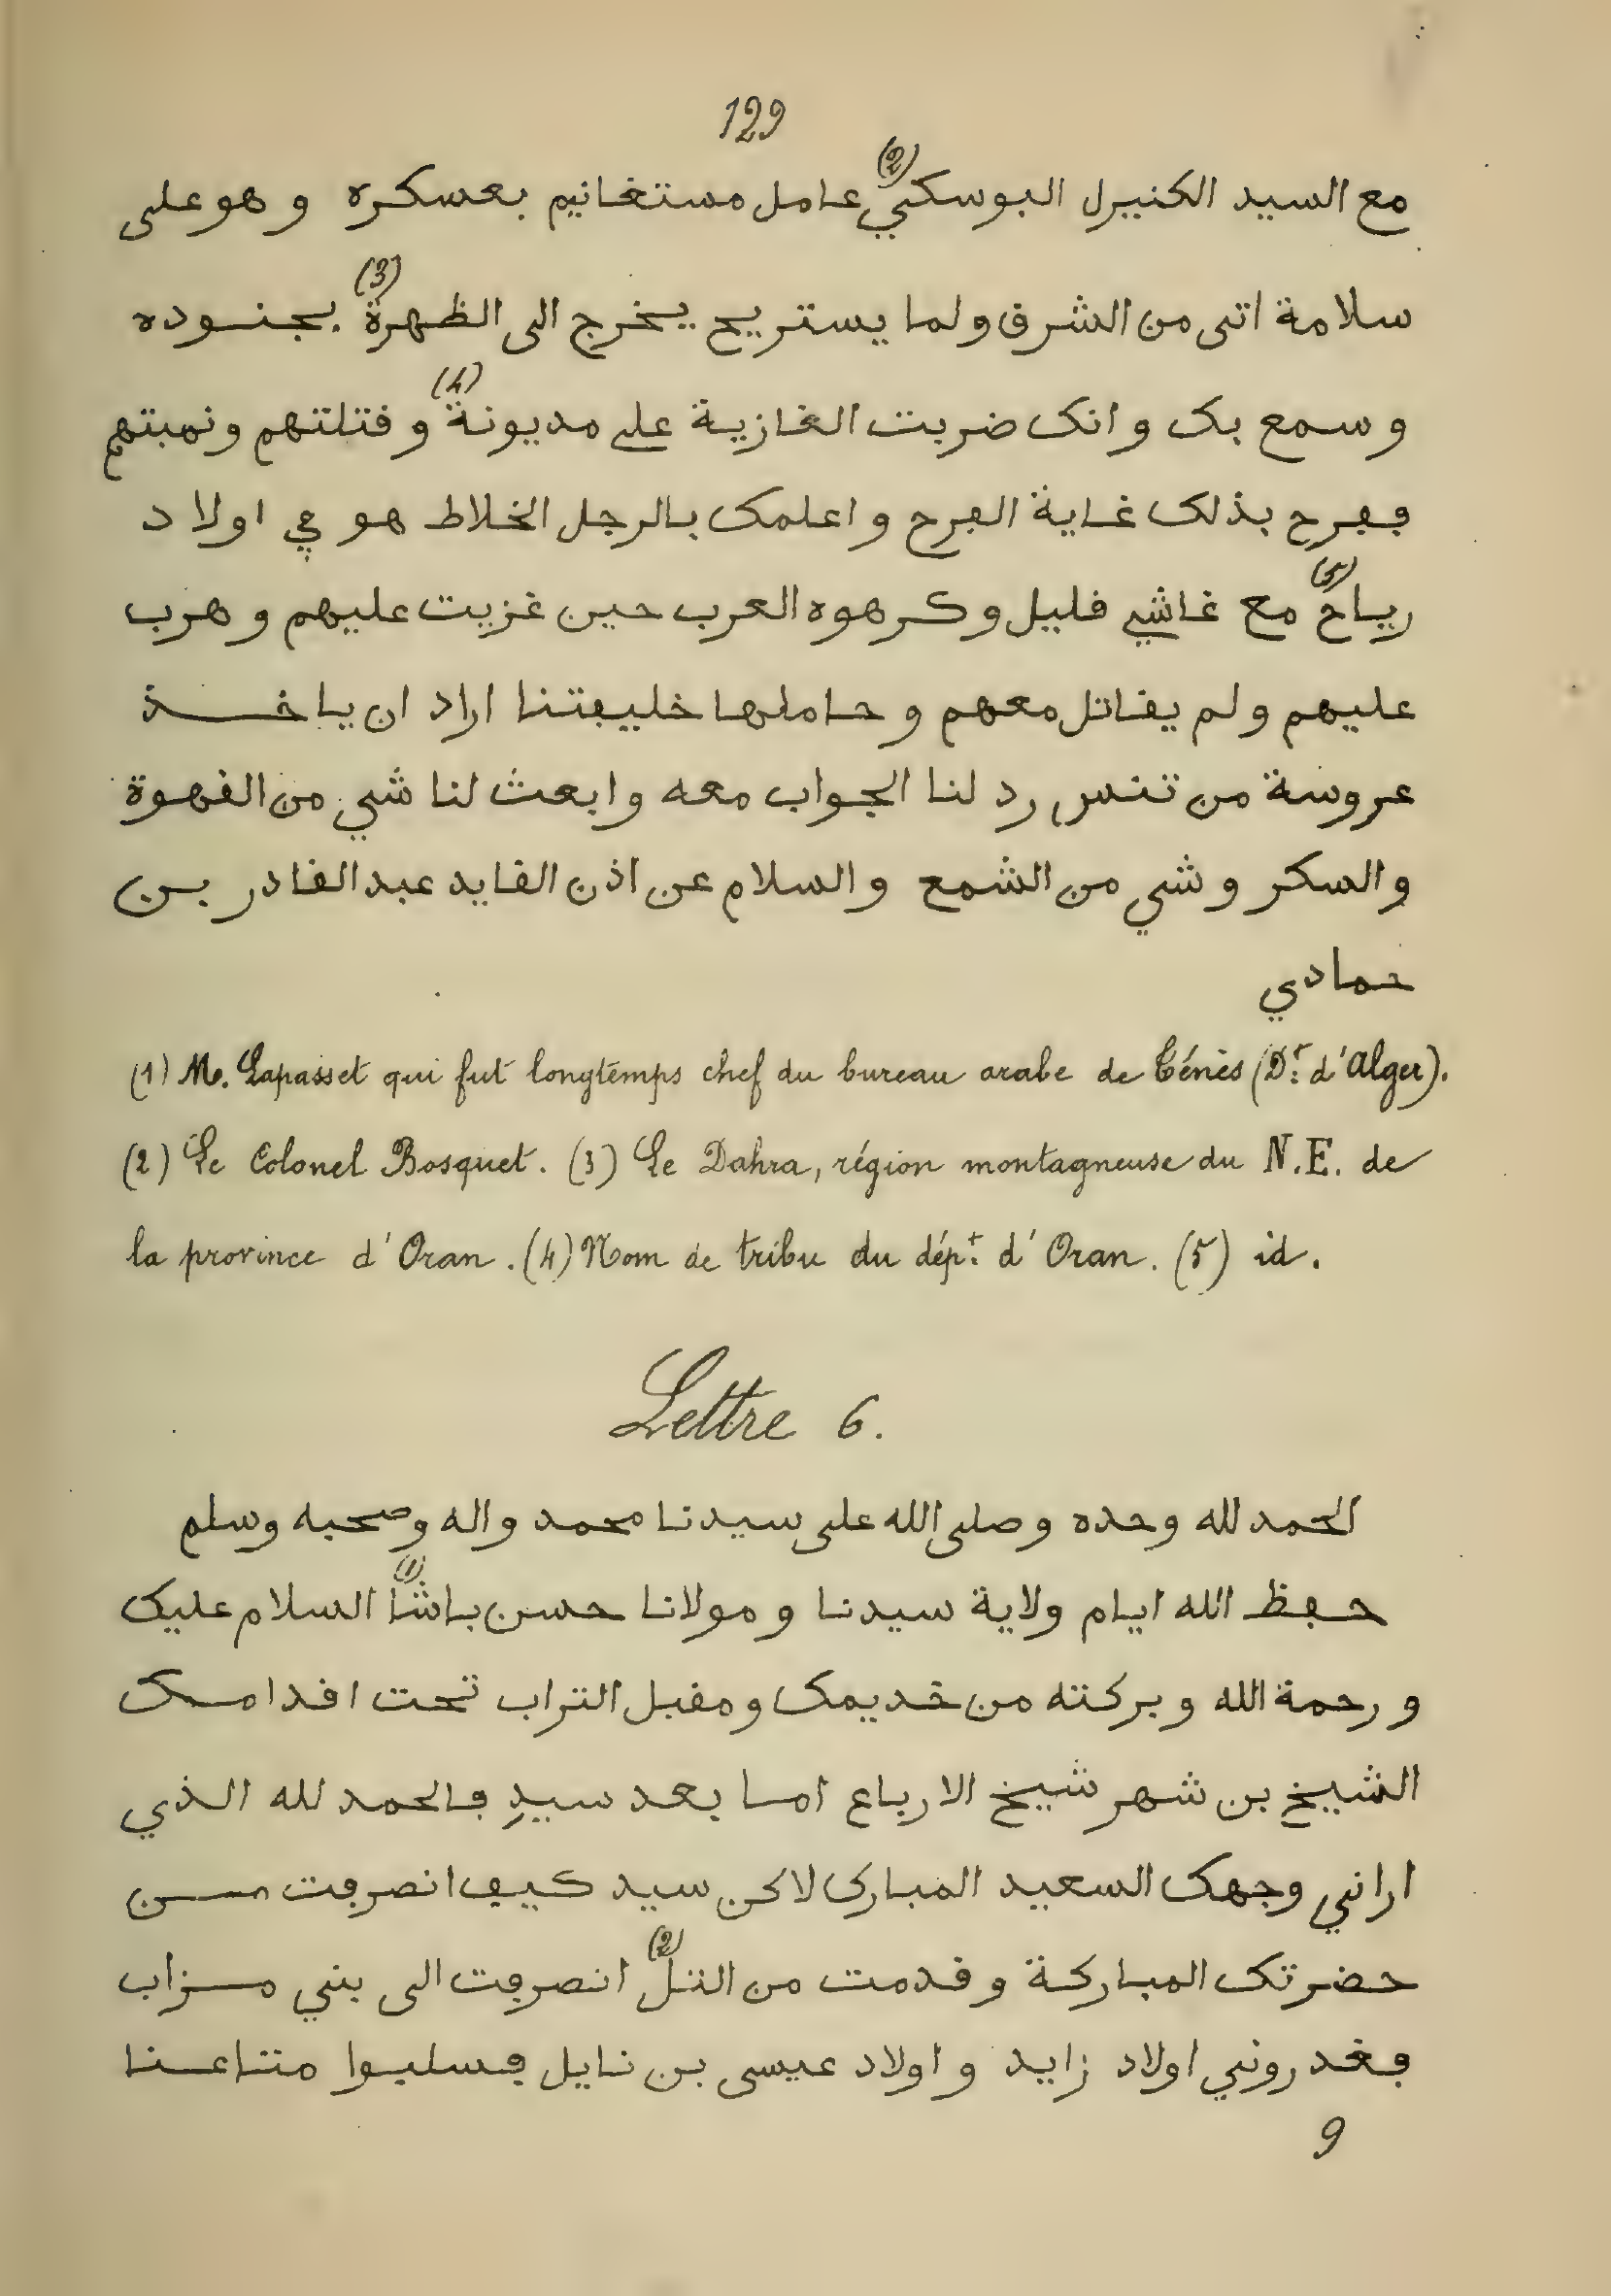 129
مع السيد الكنيرل البوسكي (2) عامل مستغانيم بعسكره و هو على
سلامة اتى من الشرق و لما يستريح يخرج الى الظهرة (3) بجنوده
و سمع بك و انك ضربت الغازية على مديونة (4) و قتلتهم و نهبتهم
ففرح بذلك غاية الفرح و اعلمك بالرجل الخلاط هو في اولاد
رياح (5) مع غاشي قليل و كرهوه العرب حين غزيت عليهم و هرب
عليهم و لم يقاتل معهم و حاملها خليفتنا اراد ان ياخذ
عروسة من تنس رد لنا الجواب معه و ابعث لنا شي من القهوة
و السكر و شي من الشمع و السلام عن اذن القايد عبد القادر بن
حمادي
(1) M. Lapasset qui fut longtemps chef du bureau arabe de Ténès (Dt. d'Alger).
(2) Le Colonel Bosquet. (3) Le Dahra, région montagneuse du N.E. de
la province d'Oran. (4) Nom de tribu du dépt. d'Oran. (5) id.
Lettre 6.
الحمد لله وحده و صلى الله على سيدنا محمد و اله و صحبه و سلم
حفظ الله ايام ولاية سيدنا و مولانا حسن باشا (1) السلام عليك
و رحمة الله و بركته من خديمك و مقبل التراب تحت اقدامك
الشيخ بن شهر شيخ الارباع اما بعد سيدِ فالحمد لله الذي
اراني وجهك السعيد المبارك لاكن سيد كيف انصرفت من
حضرتك المباركة و قدمت من التل (2) انصرفت الى بني مزاب
فغدروني اولاد زايد و اولاد عيسى بن نايل فسلبوا متاعنا
9